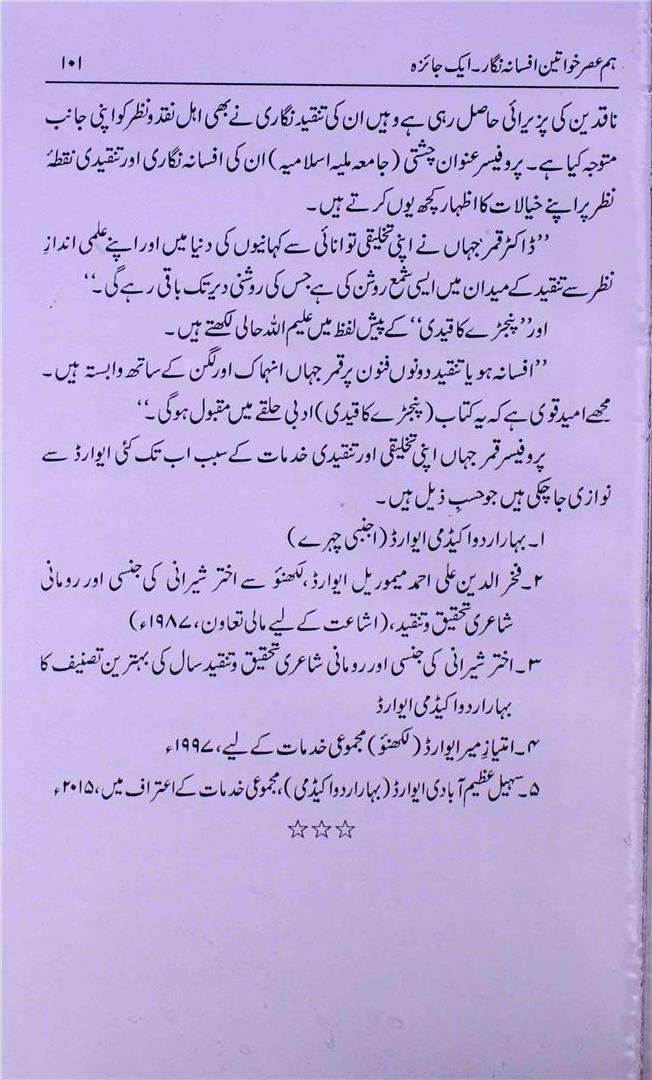 ہم عصر خواتین افسانہ نگار۔ ایک جائزہ ۱۰۱
ناقدین کی پزیرائی حاصل رہی ہے وہیں ان کی تنقید نگاری نے بھی اہل نقد و نظر کو اپنی جانب
متوجہ کیا ہے۔ پروفیسر عنوان چشتی (جامعہ ملیہ اسلامیہ) ان کی افسانہ نگاری اور تنقیدی نقطۂ
نظر پر اپنے خیالات کا اظہار کچھ یوں کرتے ہیں۔
’’ڈاکٹر قمر جہاں نے اپنی تخلیقی توانائی سے کہانیوں کی دنیا میں اور اپنے علمی اندازِ
نظر سے تنقید کے میدان میں ایسی شمع روشن کی ہے جس کی روشنی دیر تک باقی رہے گی۔‘‘
اور ’’پنجڑے کا قیدی‘‘ کے پیش لفظ میں علیم اللہ حالی لکھتے ہیں۔
’’افسانہ ہو یا تنقید دونوں فنون پر قمر جہاں انہماک اور لگن کے ساتھ وابستہ ہیں۔
مجھے امید قوی ہے کہ یہ کتاب (پنجڑے کا قیدی) ادبی حلقے میں مقبول ہوگی۔‘‘
پروفیسر قمر جہاں اپنی تخلیقی اور تنقیدی خدمات کے سبب اب تک کئی ایوارڈ سے
نوازی جا چکی ہیں جو حسبِ ذیل ہیں۔
۱۔ بہار اردو اکیڈمی ایوارڈ (اجنبی چہرے)
۲۔ فخر الدین علی احمد میموریل ایوارڈ، لکھنؤ سے اختر شیرانی کی جنسی اور رومانی
شاعری تحقیق و تنقید، (اشاعت کے لیے مالی تعاون، ۱۹۸۷ء)
۳۔ اختر شیرانی کی جنسی اور رومانی شاعری تحقیق و تنقید سال کی بہترین تصنیف کا
بہار اردو اکیڈمی ایوارڈ
۴۔ امتیازِ میر ایوارڈ (لکھنؤ) مجموعی خدمات کے لیے، ۱۹۹۷ء
۵۔ سہیل عظیم آبادی ایوارڈ (بہار اردو اکیڈمی)، مجموعی خدمات کے اعتراف میں، ۲۰۱۵ء
☆☆☆